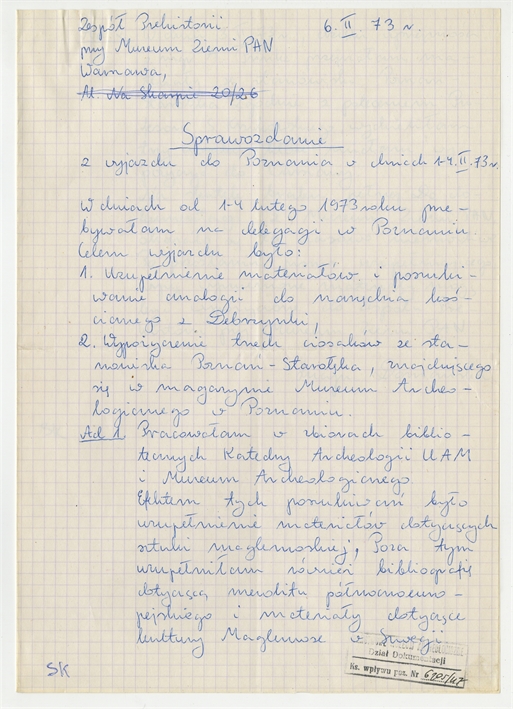 Zespół Prehistorii 6. II. 73 r.
przy Muzeum Ziemi PAN
Warszawa,
Al. Na Skarpie 20/26
Sprawozdanie
z wyjazdu do Poznania w dniach 1-4.II.73r.
W dniach od 1-4 lutego 1973 roku prze-
bywałam na delegacji w Poznaniu.
Celem wyjazdu było:
1. Uzupełnienie materiałów i poszuki-
wanie analogii do narzędzia koś-
cianego z Debrzynki,
2. Wypożyczenie trzech ciosaków ze sta-
nowiska Poznań-Starołęka, znajdującego
się w magazynie Muzeum Archeo-
logicznego w Poznaniu.
Ad 1. Pracowałam w zbiorach biblio-
tecznych Katedry Archeologii UAM
i Muzeum Archeologicznego
Efektem tych poszukiwań było
uzupełnienie materiałów dotyczących
sztuki maglemoskiej, Poza tym
uzupełniłam również bibliografię
dotyczącą mezolitu północnoeuro-
pejskiego i materiały dotyczące
kultury Maglemose w Szwecji
Dział Dokumentacji
Ks. wpływu poz. Nr
SK